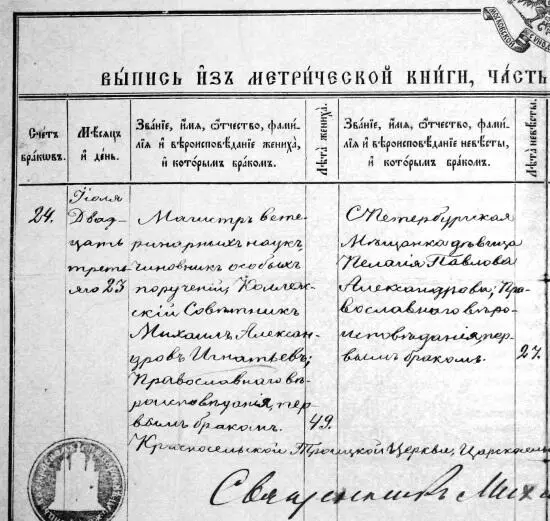 МОСКОВСКОЙ
СѴНОД
ВЫ́ПИСЬ И҆ЗЪ МЕТРИ́ЧЕСКОЙ КНИ́ГИ, ЧА́СТЬ
Счетъ браковъ.
Мѣсяцъ и день.
Зва́нїе, и҆́мѧ, ѻ҆́тчество, фами́-
лїѧ и҆ вѣроисповѣ́данїе жениха̀,
и҆ кото́рымъ бра́комъ.
Лѣта̀ жениха̀.
Зва́нїе, и҆́мѧ, ѻ҆́тчество, фами́-
лїѧ и҆ вѣроисповѣ́данїе невѣ́сты,
и҆ кото́рымъ бра́комъ.
Лѣта̀ невѣ́сты.
24.
Іюля
Двад
цать
треть
яго 23
Магистръ вете
ринарныхъ наукъ,
чиновникъ особыхъ
порученій, Коллеж
скій Совѣтникъ
Михаилъ Алексан
дровъ Игнатьевъ;
Православнаго вѣ
роисповѣданія, пер
вымъ бракомъ.
49.
С.Петербургская
Мѣщанка дѣвица
Пелагія Павлова
Александрова; Пра
вославнаго вѣро
исповѣданія, пер
вымъ бракомъ.
27.
Красносельской Троицкой Церкви, Царскосель
Священникъ Миха